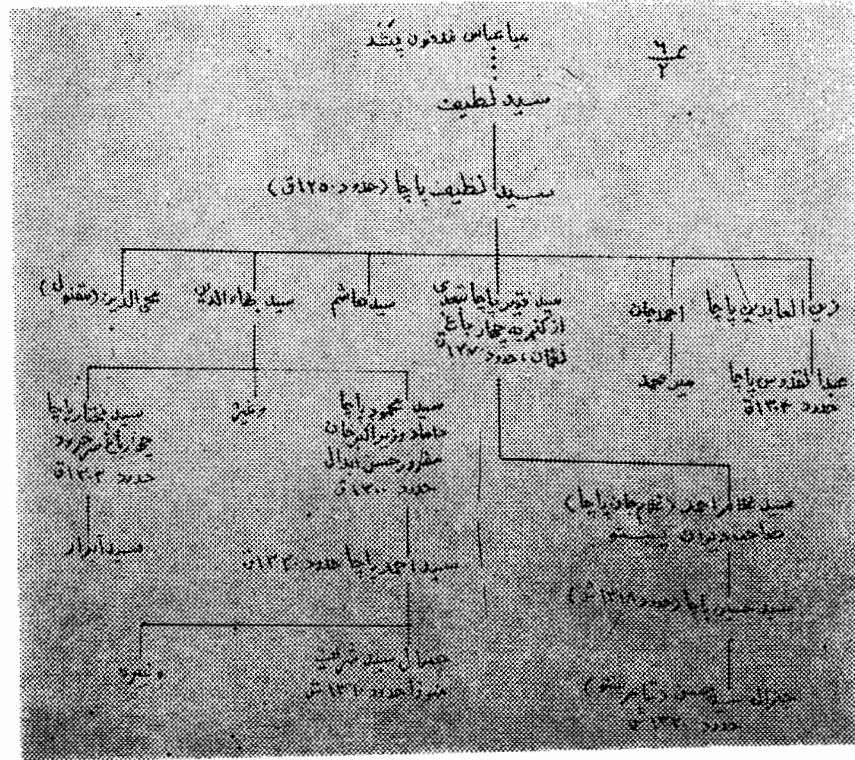 میا عباس مدفون پشد
۶/۲
سید لطیف
سید نظیف پاچا (حدود ۱۲۵۰ق)
زین العابدین پاچا
احمد جان
سید فقیر پاچا
از کنر به چهار باغ
لغمان، حدود ۱۲۷۰ق
سید هاشم
سید بهاءالدین
محی الدین (مقتول)
عبدالقدوس پاچا
حدود ۱۳۰۰ق
میر صمد
سید محمود پاچا
داماد وزیر اکبر خان
مفرور حسن ابدال
حدود ۱۳۰۰ق
وغیره
سید مختار پاچا
چهار باغ سرخرود
حدود ۱۳۰۳ق
سید غلام احمد (غلام جان پاچا)
صاحب دیوان پښتو
سید احمد پاچا حدود ۱۳۲۰ق
سید ابرار
سید حسین پاچا (حدود ۱۳۱۸ش)
جنرال سید شریف
حدود ۱۳۱۰ش
وغیره
جنرال سید حسن (شاعر پښتو)
حدود ۱۳۲۰ش